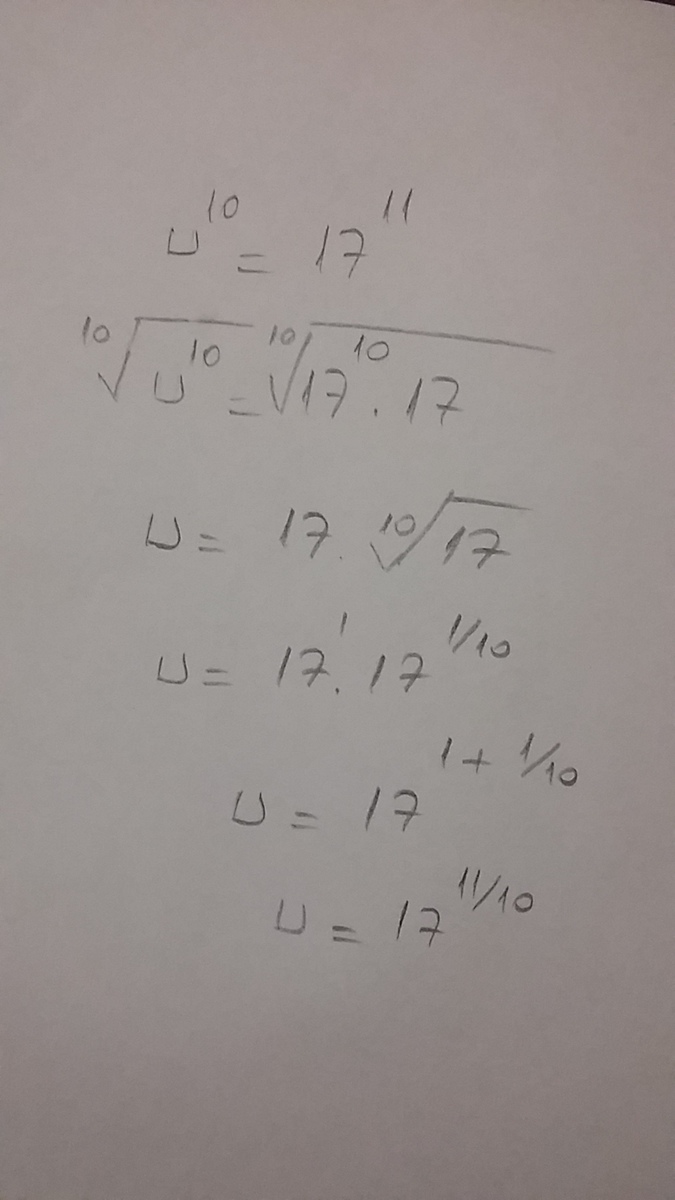 u¹⁰ = 17¹¹
¹⁰√u¹⁰ = ¹⁰√17¹⁰ . 17
u = 17 . ¹⁰√17
u = 17¹ . 17^1/10
u = 17^1 + 1/10
u = 17^11/10